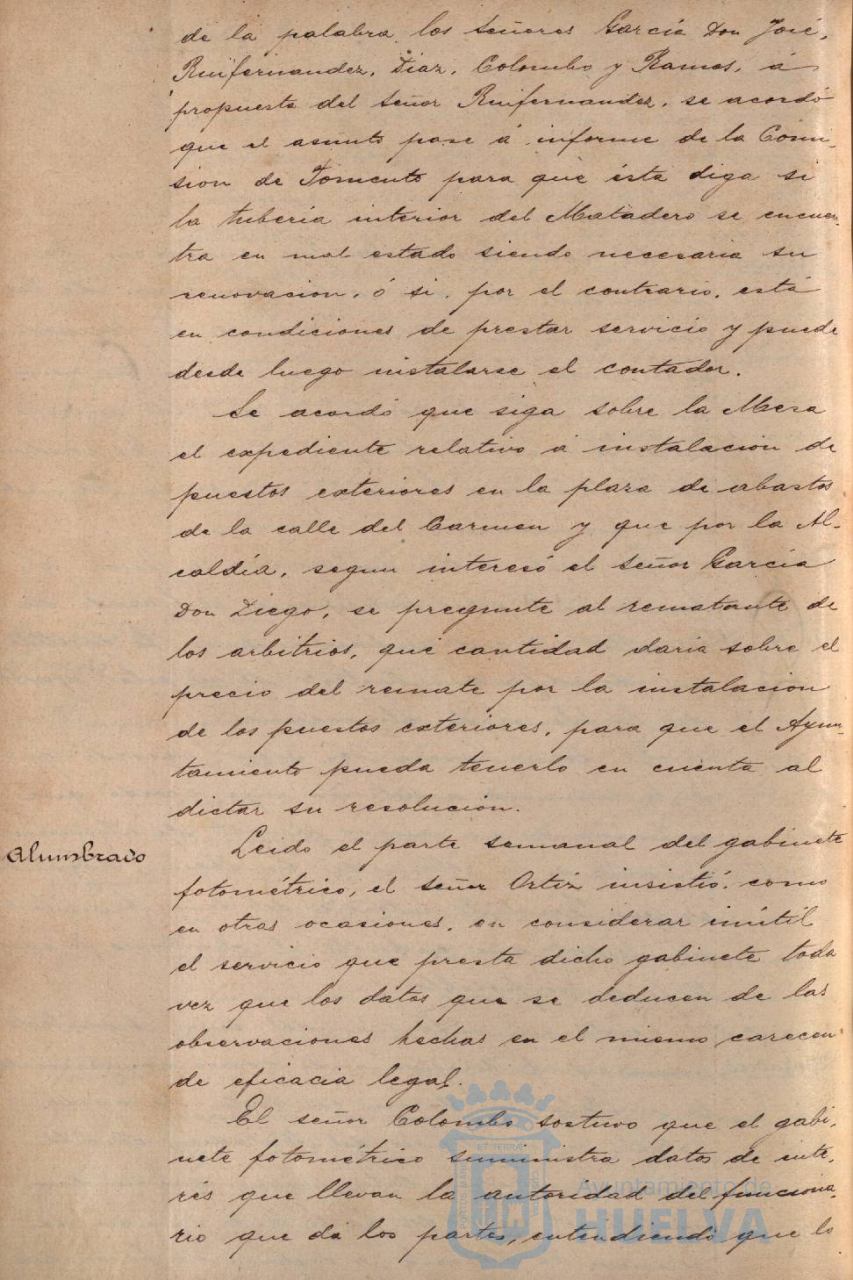 de la palabra los señores García Don José,
Ruifernandez, Diaz, Colombo y Ramos, á
propuesta del señor Ruifernandez, se acordó
que el asunto pase á informe de la Comi-
sion de Fomento para que ésta diga si
la tubería interior del Matadero se encuen-
tra en mal estado siendo necesaria su
renovacion, ó si, por el contrario, está
en condiciones de prestar servicio y puede
desde luego instalarse el contador.
Se acordó que siga sobre la Mesa
el expediente relativo á instalacion de
puestos exteriores en la plaza de abastos
de la calle del Carmen y que por la Al-
caldía, segun interesó el señor García
Don Diego, se pregunte al rematante de
los arbitrios, qué cantidad daria sobre el
precio del remate por la instalacion
de los puestos exteriores, para que el Ayun-
tamiento pueda tenerlo en cuenta al
dictar su resolucion.
Alumbrado
Leido el parte semanal del gabinete
fotométrico, el señor Ortiz insistió, como
en otras ocasiones, en considerar inútil
el servicio que presta dicho gabinete toda
vez que los datos que se deducen de las
observaciones hechas en el mismo carecen
de eficacia legal.
El señor Colombo sostuvo que el gabi-
nete fotométrico suministra datos de inte-
rés que llevan la autoridad del funciona-
rio que dá los partes, entendiendo que lo
Ayuntamiento de
HUELVA